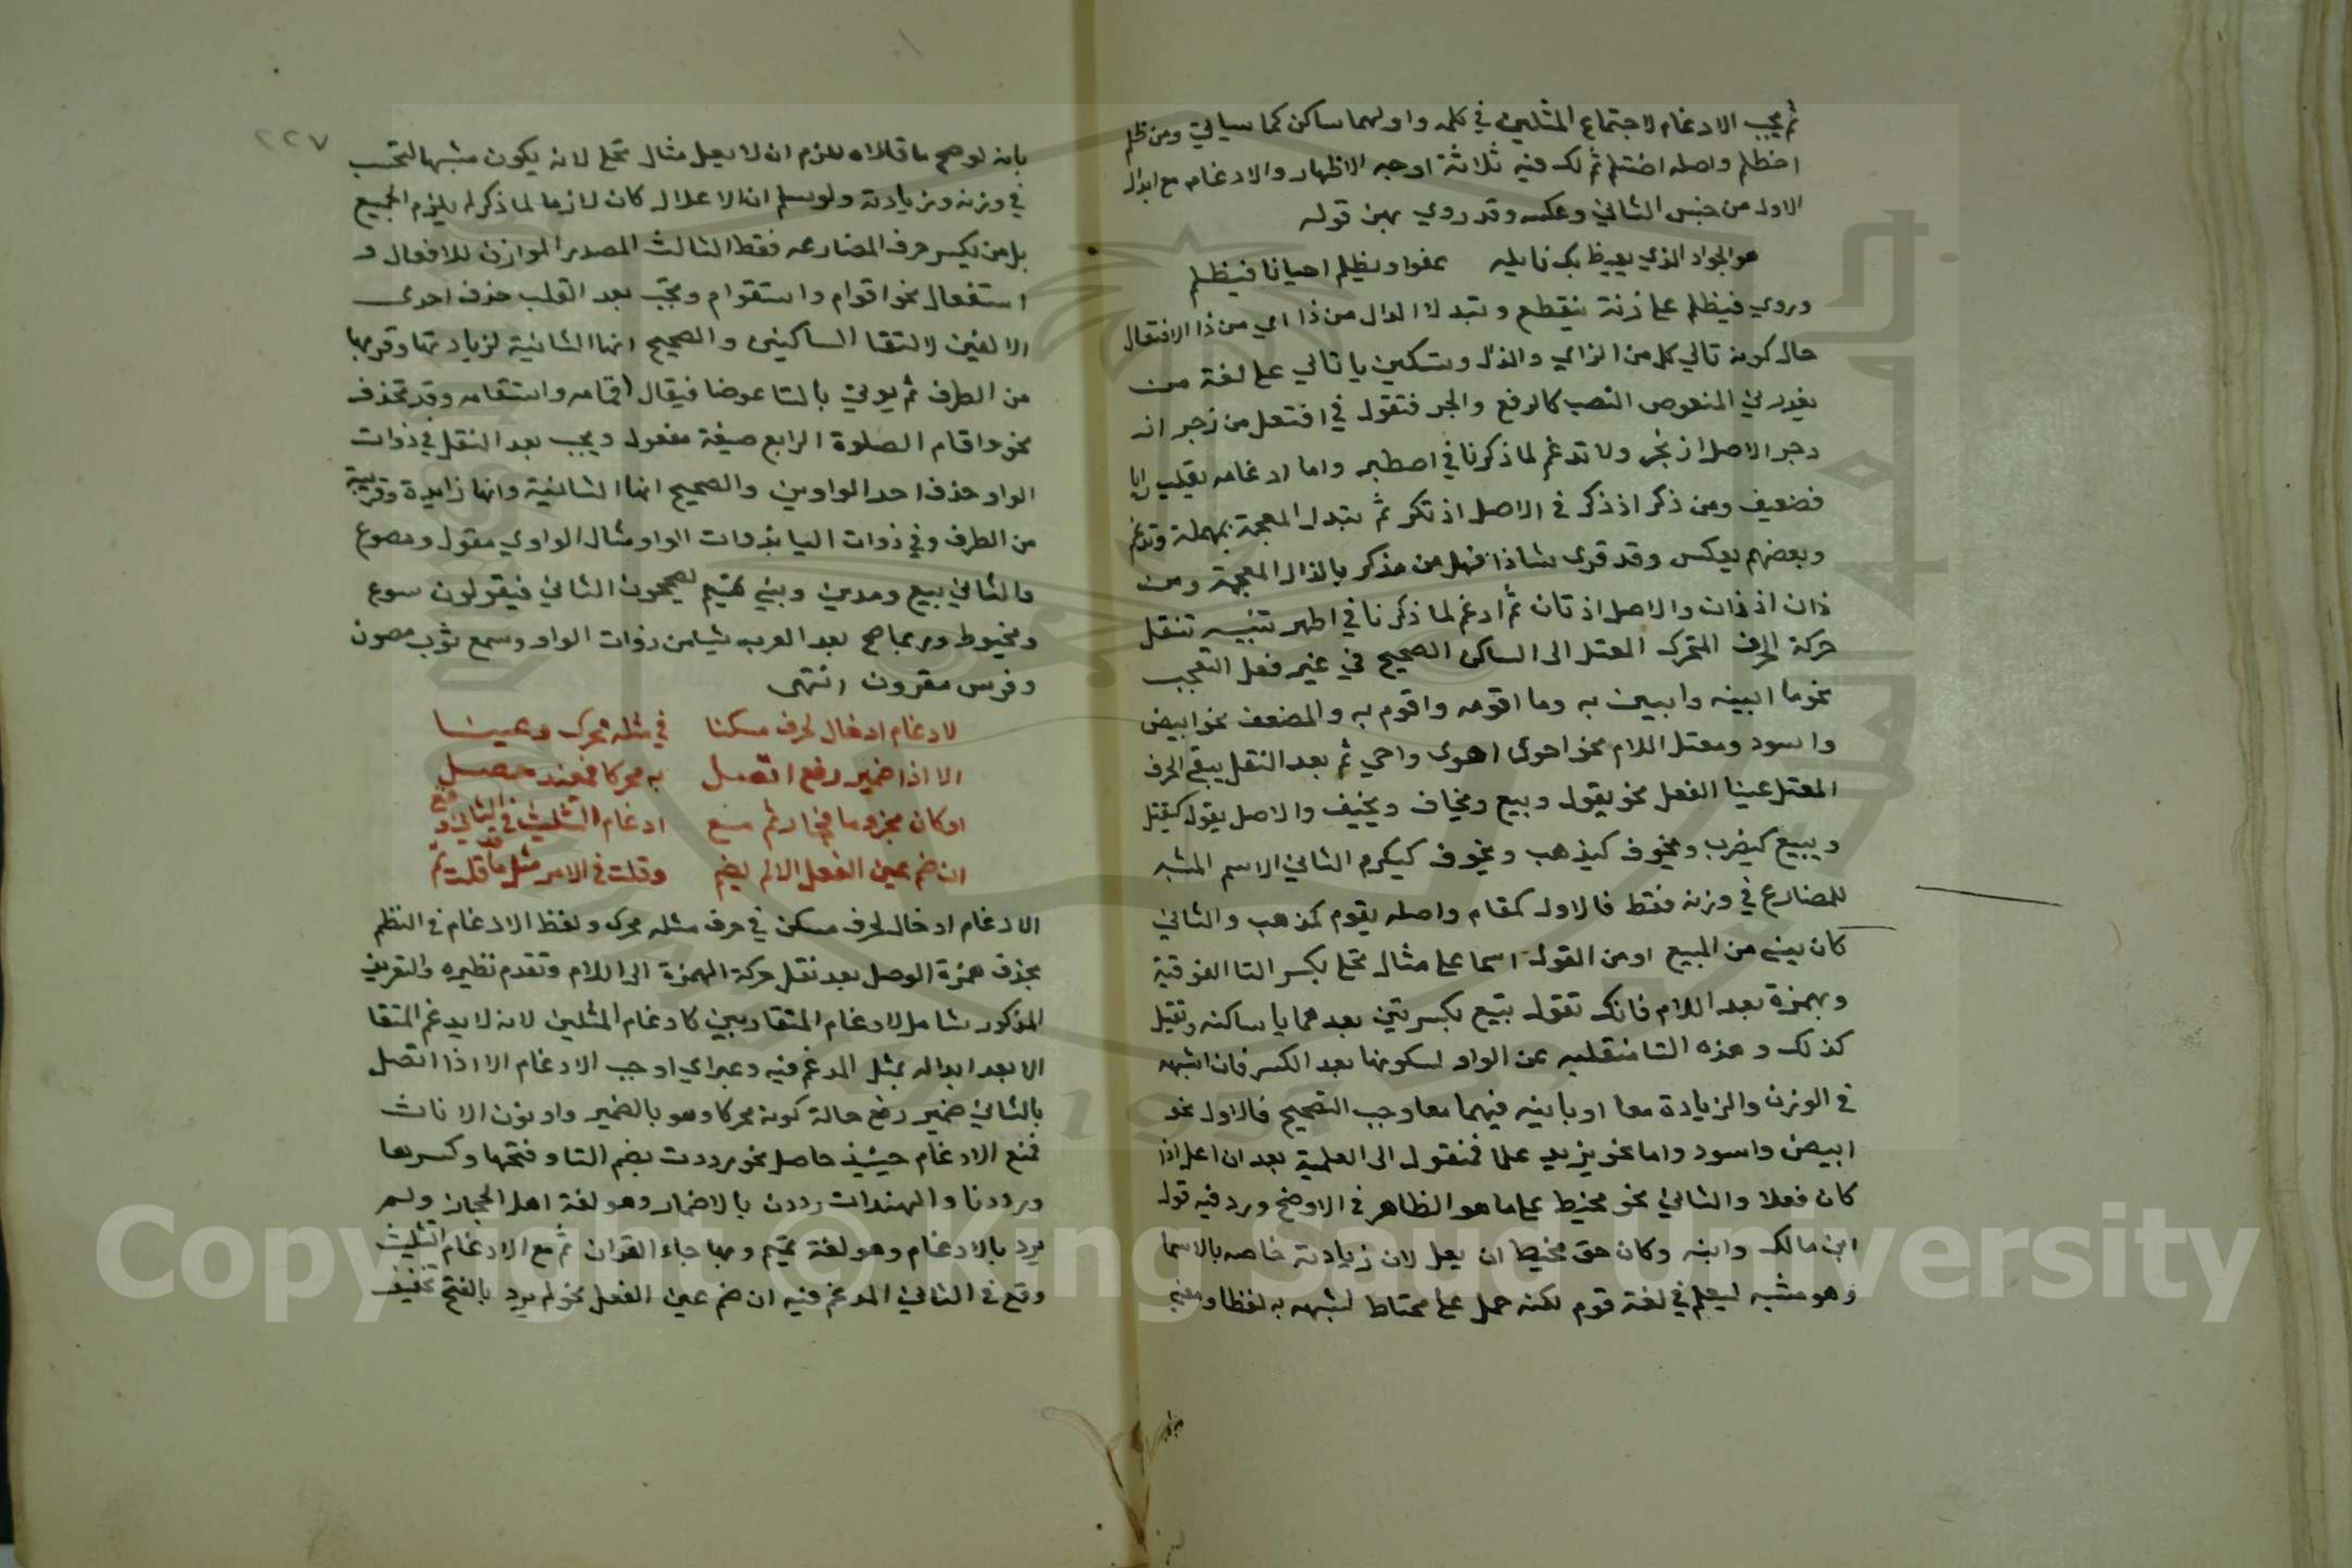 ثم يجب الادغام لاجتماع المثلين في كلمه واولهما ساكن كما سياتي ومن ظلم
اظطلم واصله اظتلم ثم لك فيه ثلاثة اوجه الاظهار والادغام مع ابدال
الاول من جنس الثاني وعكسه وقد روي بهن قوله
هو الجواد الذي يعطيك نايله عفوا ويظلم احيانا فيظلم
وروي فينظلم على زنة ينقطع وتبدل الدال من ذا اي من ذا الافتعال
حال كونه تالي كل من الزاي والذال وتسكين يا تالي على لغة من
يقدر في المنقوص النصب كالرفع والجر فتقول في افتعل من زجر از
دجر الاصل ازتجر ولا تدغم لما ذكرنا في اصطبر واما ادغامه بقلب زايا
فضعيف ومن ذكر اذدكر في الاصل اذتكر ثم تبدل المعجمة بمهملة وتدغم
وبعضهم يعكس وقد قرى شاذا فهل من مذكر بالذال المعجمة ومن
ذان اذذان والاصل اذتان ثم ادغم لما ذكرنا في اطهر تنبيه تنقل
حركة الحرف المتحرك المعتل الى الساكن الصحيح في غير فعل التعجب
نحو ما ابينه وابيين به وما اقومه واقوم به والمضعف نحو ابيض
واسود ومعتل اللام نحو احوى اهوى واحي ثم بعد النقل يبقى الحرف
المعتل عينا الفعل نحو يقول وبيع ويخاف ويخيف والاصل يقول كيقتل
ويبيع كيضرب ويخوف كيذهب ويخوف كيكرم الثاني الاسم المشبه
للمضارع في وزنه فقط فالاول كمقام واصله يقوم كمذهب والثاني
كان يبنى من المبيع او من القول اسما على مثال تحلئ بكسر التا الفوقية
وبهمزة بعد اللام فانك تقول تبيع بكسرتين بعدهما يا ساكنه وتقيل
كذلك وهذه اليا منقلبه عن الواو لسكونها بعد الكسر فان اشبهه
في الوزن والزيادة معا او باينه فيهما معا وجب التصحيح فالاول نحو
ابيض واسود واما نحو يزيد علما فمنقول الى العلمية بعد ان اعل اذا
كان فعلا والثاني نحو مخيط على ما هو الظاهر في الاوضح ورد فيه قول
ابن مالك وابنه وكان حق مخيط ان يعل لان زيادته خاصه بالاسما
وهو مشبه ليعلم في لغة قوم لكنه حمل على مخياط لشبهه به لفظا ومعنى
٢٢٧
بانه لو صح ما قالاه للزم ان لا يعل مثال تحلئ لانه يكون مشبها لتحسب
في وزنه وزيادته ولو سلم ان الاعلال كان لازما لما ذكر لم يلزم الجميع
بل من يكسر حرف المضارعه فقط الثالث المصدر الموازن للافعال و
استفعال نحو اقوام واستقوام ويجب بعد القلب حذف احدى
الالفين لالتقا الساكنين والصحيح انها الثانية لزيادتها وقربها
من الطرف ثم يوتي بالتا عوضا فيقال اقامه واستقامه وقد تحذف
نحو واقام الصلوة الرابع صيغة مفعول ويجب بعد النقل في ذوات
الواو حذف احد الواوين والصحيح انها الثانية وانها زايدة وقريبة
من الطرف وفي ذوات اليا مثال الواوي مقول ومصوغ
والثاني بيع ومدين وبني تميم تصحيحون الثاني فيقولون
ومخيوط وربما صح بعد العرب شيا من ذوات الواو وسمع ثوب مصون
وفرس مقرون انتهى
لادغام ادخال لحرف سكنا في مثله محرك وعينا
الا اذا ضمير رفع اتصل به محركا فمنعه حصل
او كان مجزوما فجاز ثم مع ادغام التثليث في الثاني وقع
ان ضم عين الفعل الا لم يضم وقلت في الامر مثل ما قد قلت ثم
الادغام ادخال لحرف مسكن في حرف مثله محرك ولفظ الادغام في النظم
بحذف همزة الوصل بعد نقل حركة الهمزة الى اللام وتقدم نظيره والتعريف
المذكور شامل لادغام المتقاربين كادغام المثلين لانه لا يدغم المتقا
الا بعد ابداله بمثل المدغم فيه وعبر اي اوجب الادغام الا اذا اتصل
بالثاني ضمير رفع حالة كونه محركا وهو بالضمير واو نون الاناث
فمنع الادغام حينيذ حاصل نحو رددت بضم التا وفتحها وكسرها
ورددنا والهندات رددن بالاضمار وهو لغة اهل الحجاز ولم
يرد بالادغام وهو لغة تميم وبها جاء القران ثم مع الادغام التثليث
وقع في الثاني المدغم فيه ان ضم عين الفعل نحو لم يرد بالفتح تخفيف
Copyright © King Saud University
1957